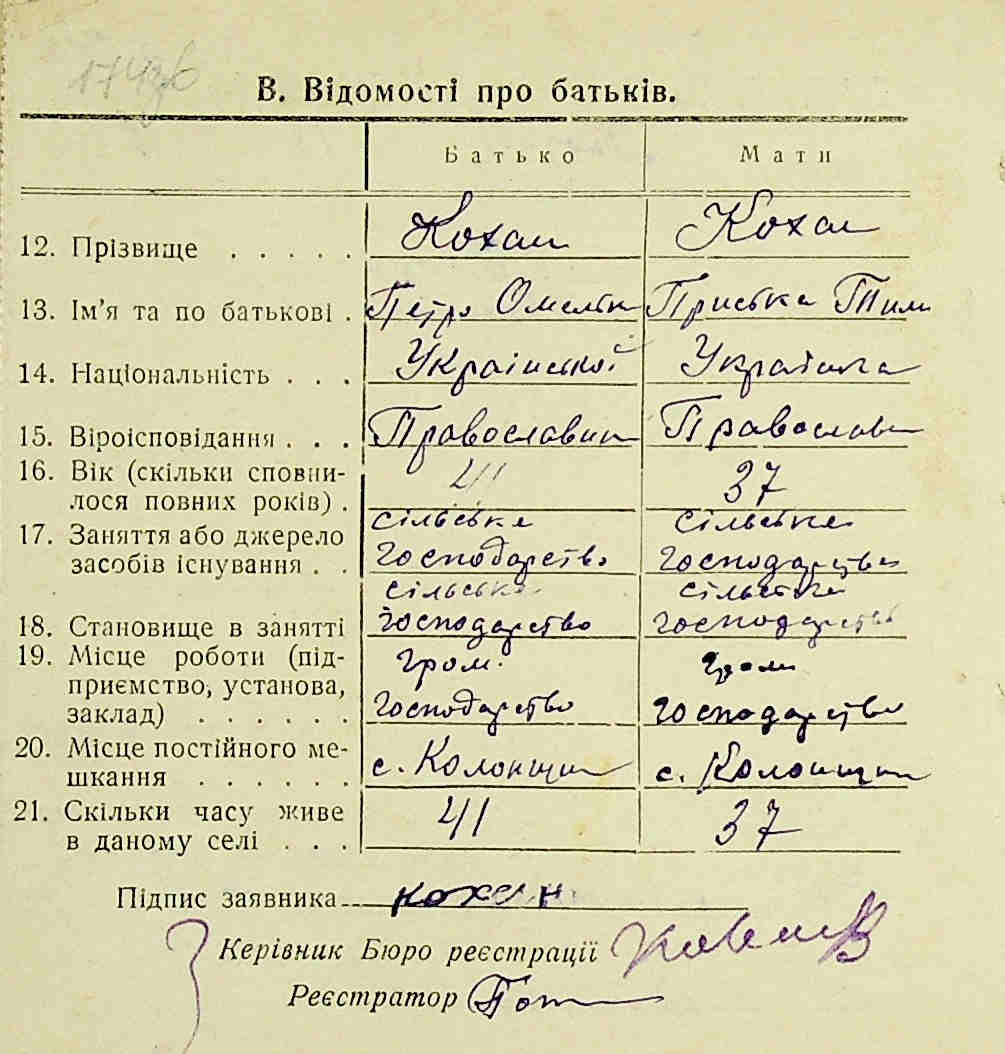 В. Відомості про батьків.
Батько Мати
12. Прізвище . . . . . Кохан Кохан
13. Ім'я та по батькові . Петро Омельк Приська Тим
14. Національність . . . Української Українка
15. Віроісповідання . . . Православн Православн
16. Вік (скільки сповни-
лося повних років) . 41 37
17. Заняття або джерело сільське сільське
засобів існування . . господарство господарство
сільське сільське
18. Становище в занятті господарство господарство
19. Місце роботи (під- гром. гром
приємство, установа,
заклад) . . . . . . господарство господарство
20. Місце постійного ме-
шкання . . . . . . с. Колонщин с. Колонщин
21. Скільки часу живе
в даному селі . . . 41 37
Підпис заявника кохан
Керівник Бюро реєстрації
Реєстратор